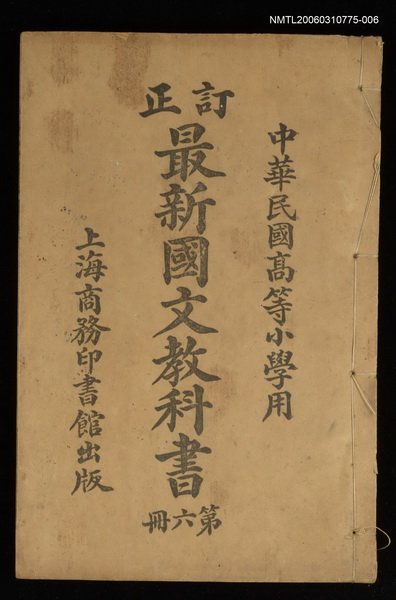 NMTL20060310775-006
中華民國高等小學用
訂正
最新國文教科書
第六冊
上海商務印書館出版